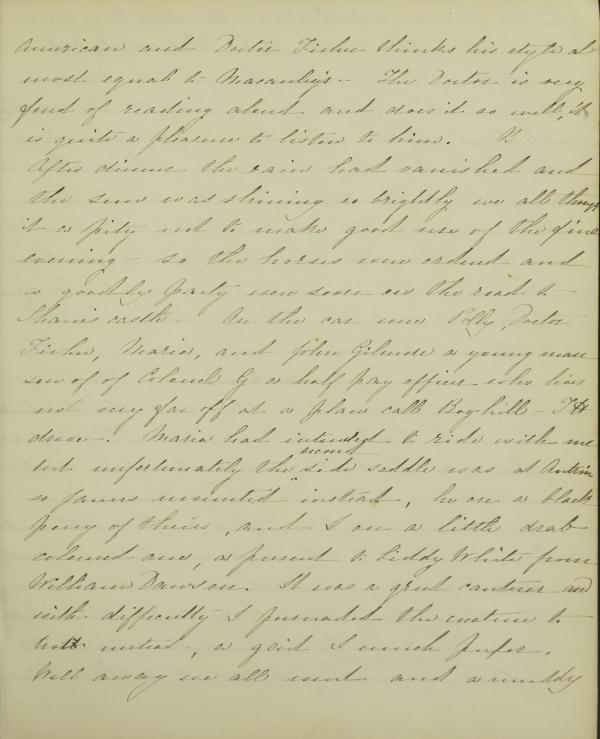 American and Doctor Fisher thinks his style al-
most equal to Macauley's - The Doctor is very
fond of reading aloud and does it so well, it
is quite a pleasure to listen to him.
After dinner the rain had vanished and
the sun was shining so brightly we all thought
it a pity not to make good use of the fine
evening - so the horses were ordered and
a goodly party were soon on the road to
Shanes castle - On the car were Polly, Doctor
Fisher, Maria, and John Gilmore a young man
son of of Colonel G a half pay officer who lives
not very far off at a place call Boghill -
drove -. Maria had intended to ride with me
but unfortunately the second side saddle was at Antrim
so James mounted instead, he on a black
pony of theirs, and I on a little drab
coloured one, a present to Liddy White from
William Dawson. It was a great canterer and
with difficulty I persuaded the creature to
trott instead -, a gait I much prefer.
Well away we all went and a muddy